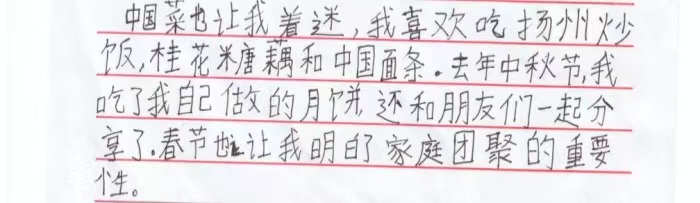 中国菜也让我着迷,我喜欢吃扬州炒
饭,桂花米唐藕和中国面条.去年中秋节,我
吃了我自己做的月饼,还和朋友们一起分
享了.春节也让我明白了家庭团聚的重要
性。